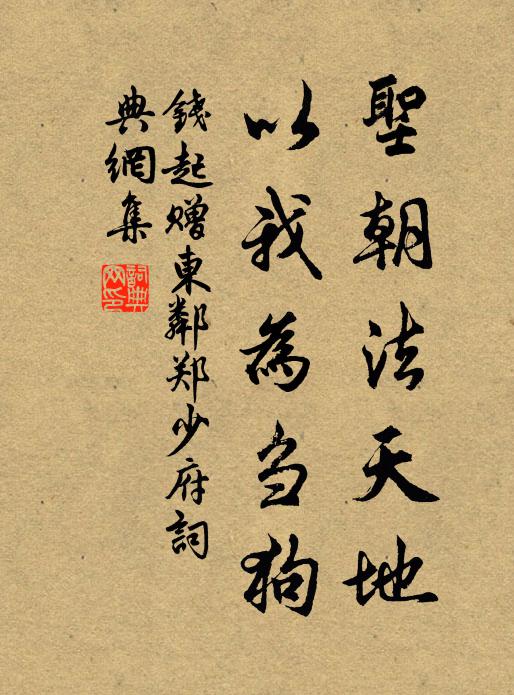 聖朝法天地
以我為刍狗
錢起赠東鄰郑少府詞
典網集
詞典
网印